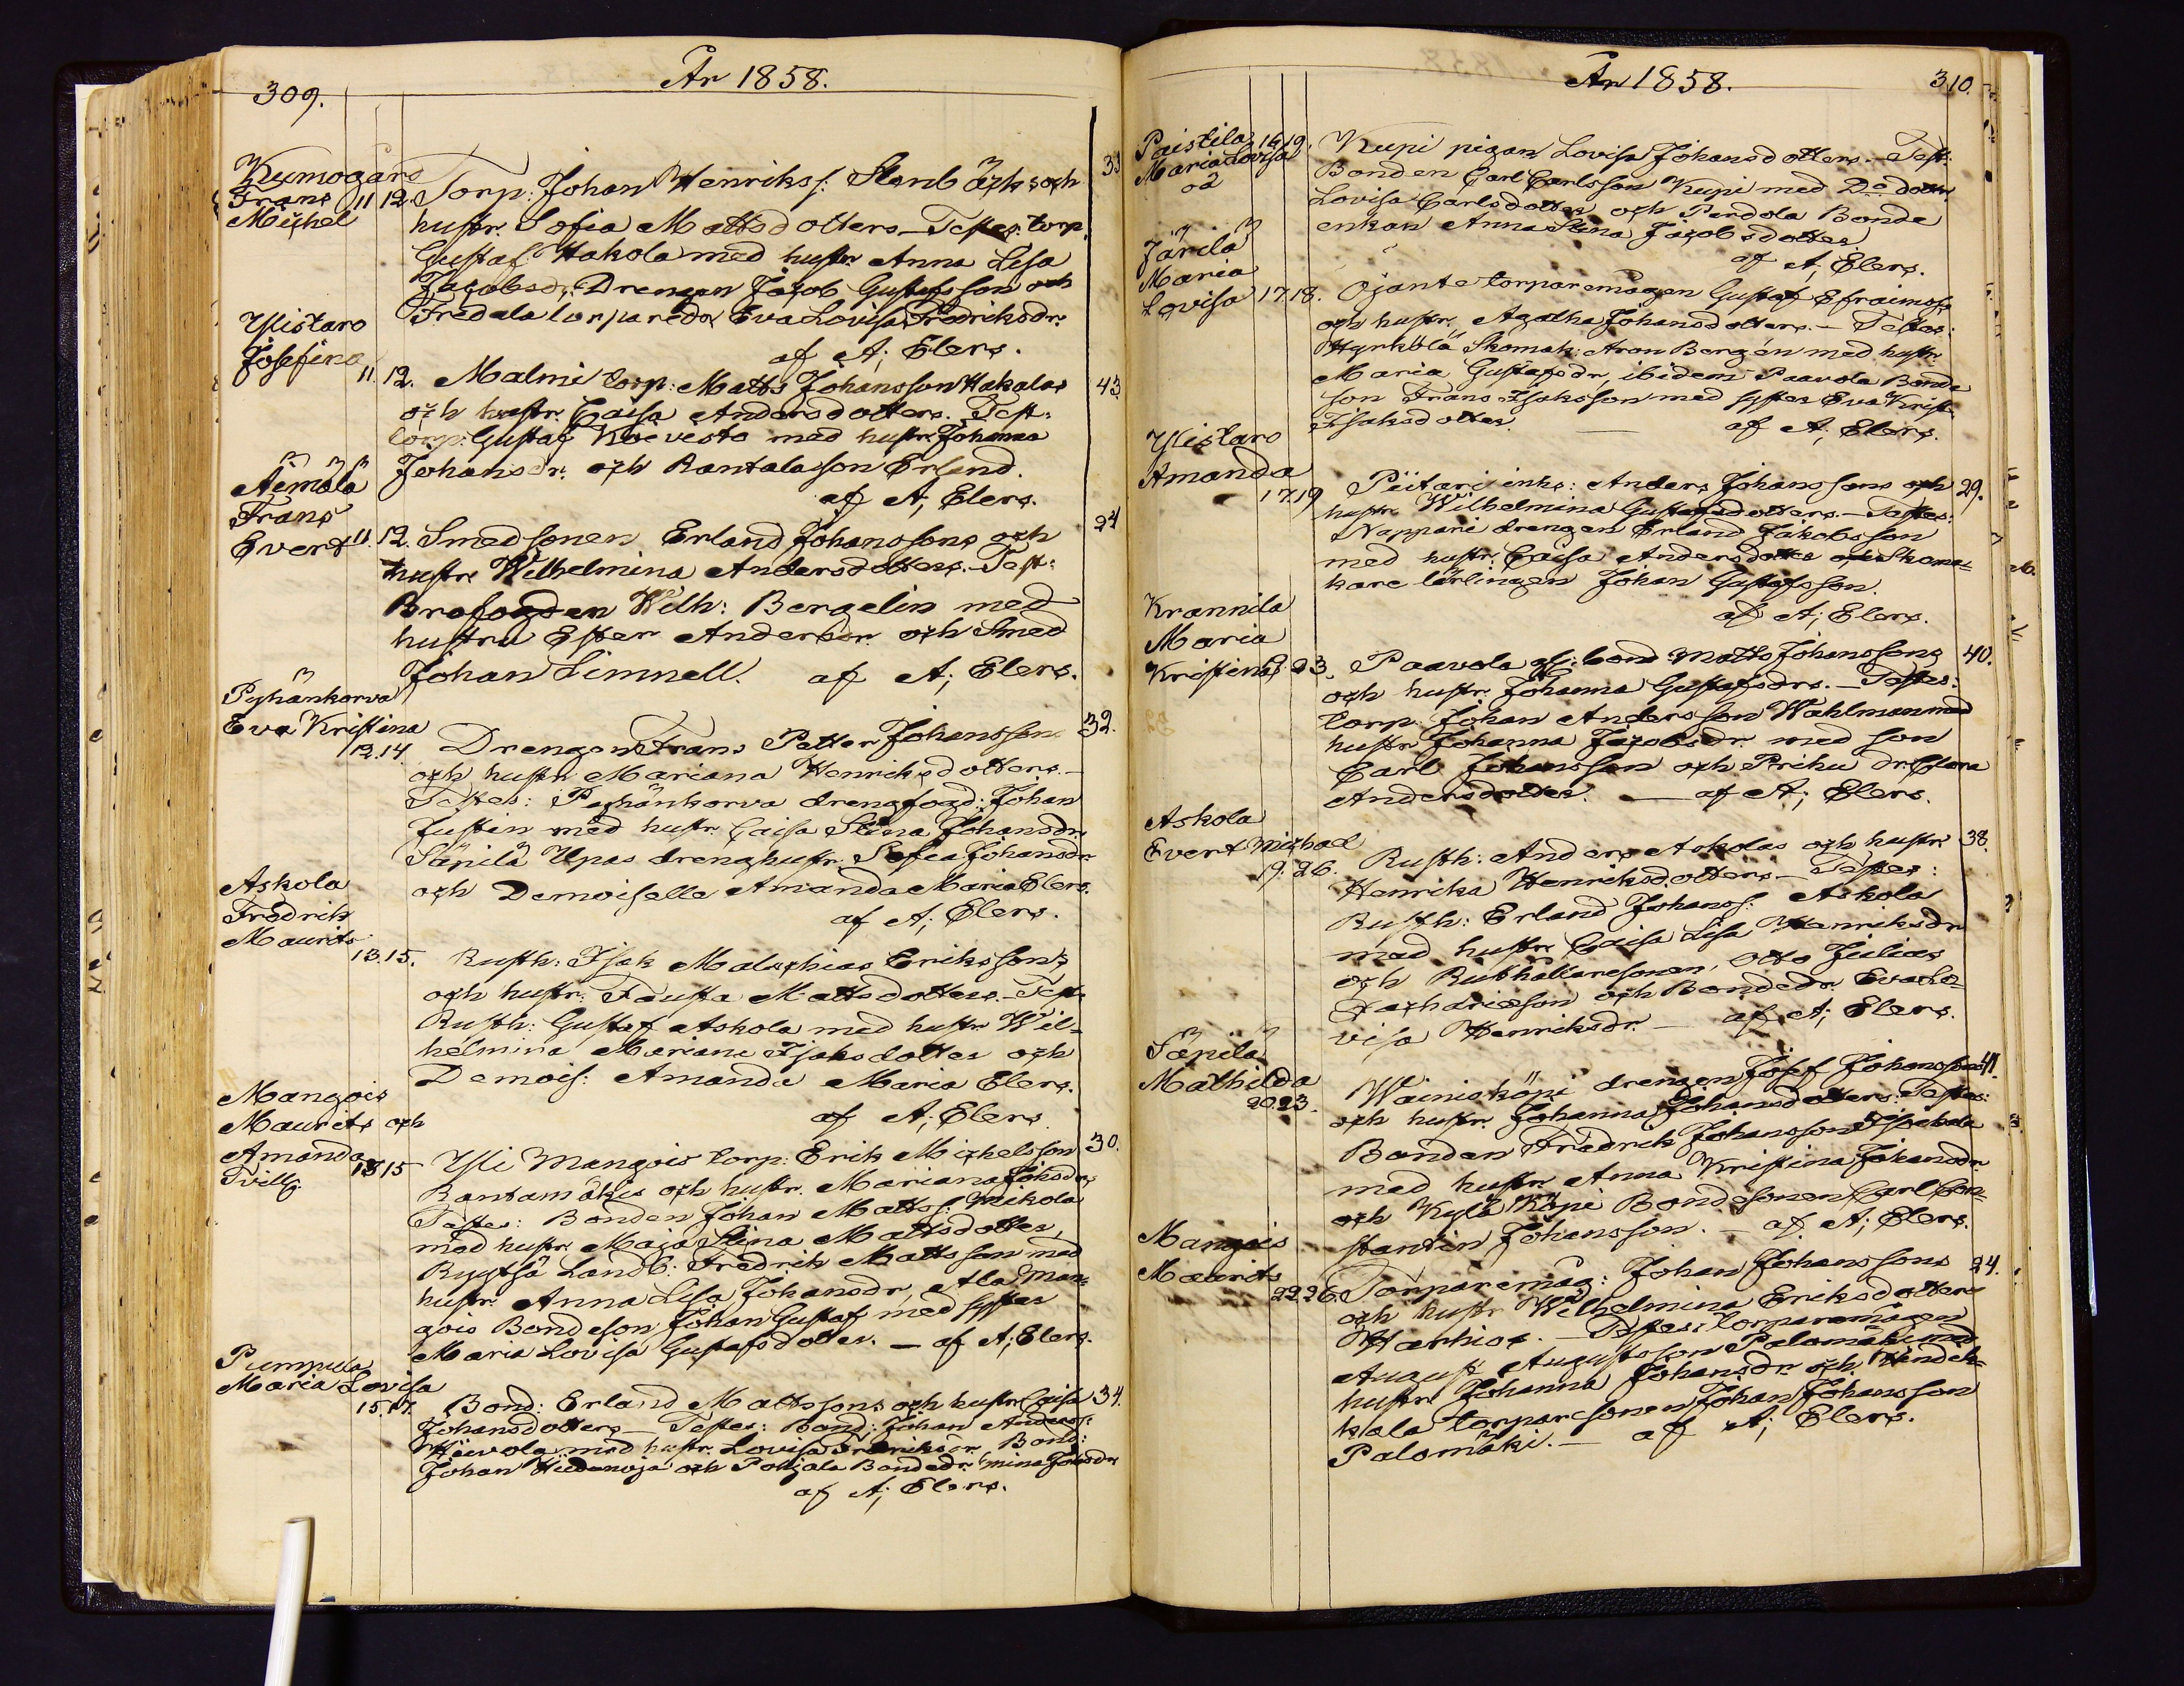 309.
År 1858.
Kumogård
Frans Michel
11 12. Torp: Johan Henrikss: Stenbäcks och 33
hustr. Sofia Mattsdotters – Testes: torp.
Gustaf Hakola med hustr Anna Lisa
Jacobsdr, Drengen Jacob Gustafsson och
Fredala torparedr Eva Lovisa Fredriksdr.
af A; Elers.
Ylistaro
Josefina
11. 12. Malmi torp: Matts Johansson Hakalas 43
och hustr. Caisa Andersdotters. Test:
torp: Gustaf Koivisto med hustr Johanna
Johansdr. och Rantalasson Erland.
af A; Elers.
Äimälä
Frans
Evert
11. 12. Smedsonen Erland Johanssons och 24
hustr Wilhelmina Andersdotters. Test:
Brofogden Wilh: Bergelin med
hustru Ester Andersdr. och Smed
Johan Limnell. af A; Elers.
Pyhänkorva
Eva Kristina
12. 14 Drengen Frans Petter Johanssons 32.
och hustr Mariana Henriksdotters. –
Testes: Pyhänkorva drengfogd: Johan
Justin med hustr. Caisa Stina Johansdr.
Säpilä Upas drenghustr. Sofia Johansdr
och Demoiselle Amanda Maria Elers.
af A; Elers.
Askola
Fredrik
Maurits
13. 15. Rusth: Isak Malachias Erikssons
och hustr: Fausta Mattsdotters. – Test:
Rusth: Gustaf Askola med hustr Wil-
helmina Mariana Isaksdotter och
Demois: Amanda Maria Elers.
af A; Elers
Mangois
Maurits och
Amanda
Tvill:
13 15 Yli Mangois torp: Erik Michelsson 30.
Rantamäkis och hustr. Mariana Johsdrs
Testes: Bonden Johan Matts: Mikola
med hustr. Maja Stina Mattsdotter,
Ryytsä Landb: Fredrik Mattsson med
hustr: Anna Lisa Johansdr, Ala Man-
gois Bondeson Johan Gustaf med syster
Maria Lovisa Gustafsdotter. – af A; Elers.
Pumpula
Maria Lovisa
15. 17. Bond: Erland Mattssons och hustr Caisa 34.
Johansdotters – Testes: Bond: Johan Anderss:
med hustr. Lovisa Fredriksdr, Bond:
Johan Hiidenoja och Pohjala Bondedr. Mina Johsdr
af A; Elers.
År 1858. 310.
Paistila
Maria Lovisa
oä
16 19. Kupi pigan Lovisa Johansdotters. – Test:
Bonden Carl Carlsson Kupi med Do dottr
Lovisa Carlsdotter och Perdola Bonde
enkan Anna Stina Jacobsdotter
af A; Elers.
Järilä
Maria
Lovisa 17 18. Ojante torparemågen Gustaf Efraimss
och hustr. Agatha Johansdotters. – Testes:
Hyrkölä Skomak: Aron Bergén med hustr
Maria Gustafsdr, ibidem Paavola Bonde
son Frans Isaksson med syster Eva Krist.
Isaksdotter. – af A; Elers.
Ylistaro
Amanda
17 19 Piitari inhs: Anders Johanssons och 29.
hustr Wilhelmina Gustafsdotters. – Testes:
Nappari drengen Erland Jakobsson
med hustr: Caisa Andersdotter och Skoma-
kare lärlingen Johan Gustafsson.
af A; Elers.
Krannila
Maria
Kristina 23. Paavola afs: bond: Matts Johanssons 40.
och hustr. Johanna Gustafsdrs. – Testes:
torp. Johan Andersson Wahlman med
hustr Johanna Jacobsdr. med son
Carl Johansson och Prihu dr Clara
Andersdotter. – af A; Elers.
Askola
Evert Michael
19. 26. Rusth: Anders Askolas och hustr 38.
Henrika Henriksdotters – Testes:
Rusth: Erland Johanss: Askola
med hustr Caisa Lisa Henriksdr
och Rusthållaresonen, Otto Julias
Zachariasson och Bondedr Eva Lo-
visa Henriksdr. – af A; Elers.
Säpilä
Mathilda
20. 23. Wainisköpi drengen Josef Johanssons 41.
och hustr. Johanna Johansdotters: Testes:
Bonden Fredrik Johansson
med hustr Anna Kristina Johansdr.
och Kylä Köpi Bondesonen Carl Con-
stantin Johansson. – af A; Elers.
Mangois
Maurits
22 26. Torparemåg: Johan Johanssons 24.
och hustr Wilhelmina Eriksdotters
Harhios. – Testes: torparemågen
August Augustsson Palomäki med
hustr Johanna Johansdr och Hendik-
kala torparesonen Johan Johansson
Palomäki. – af A; Elers.